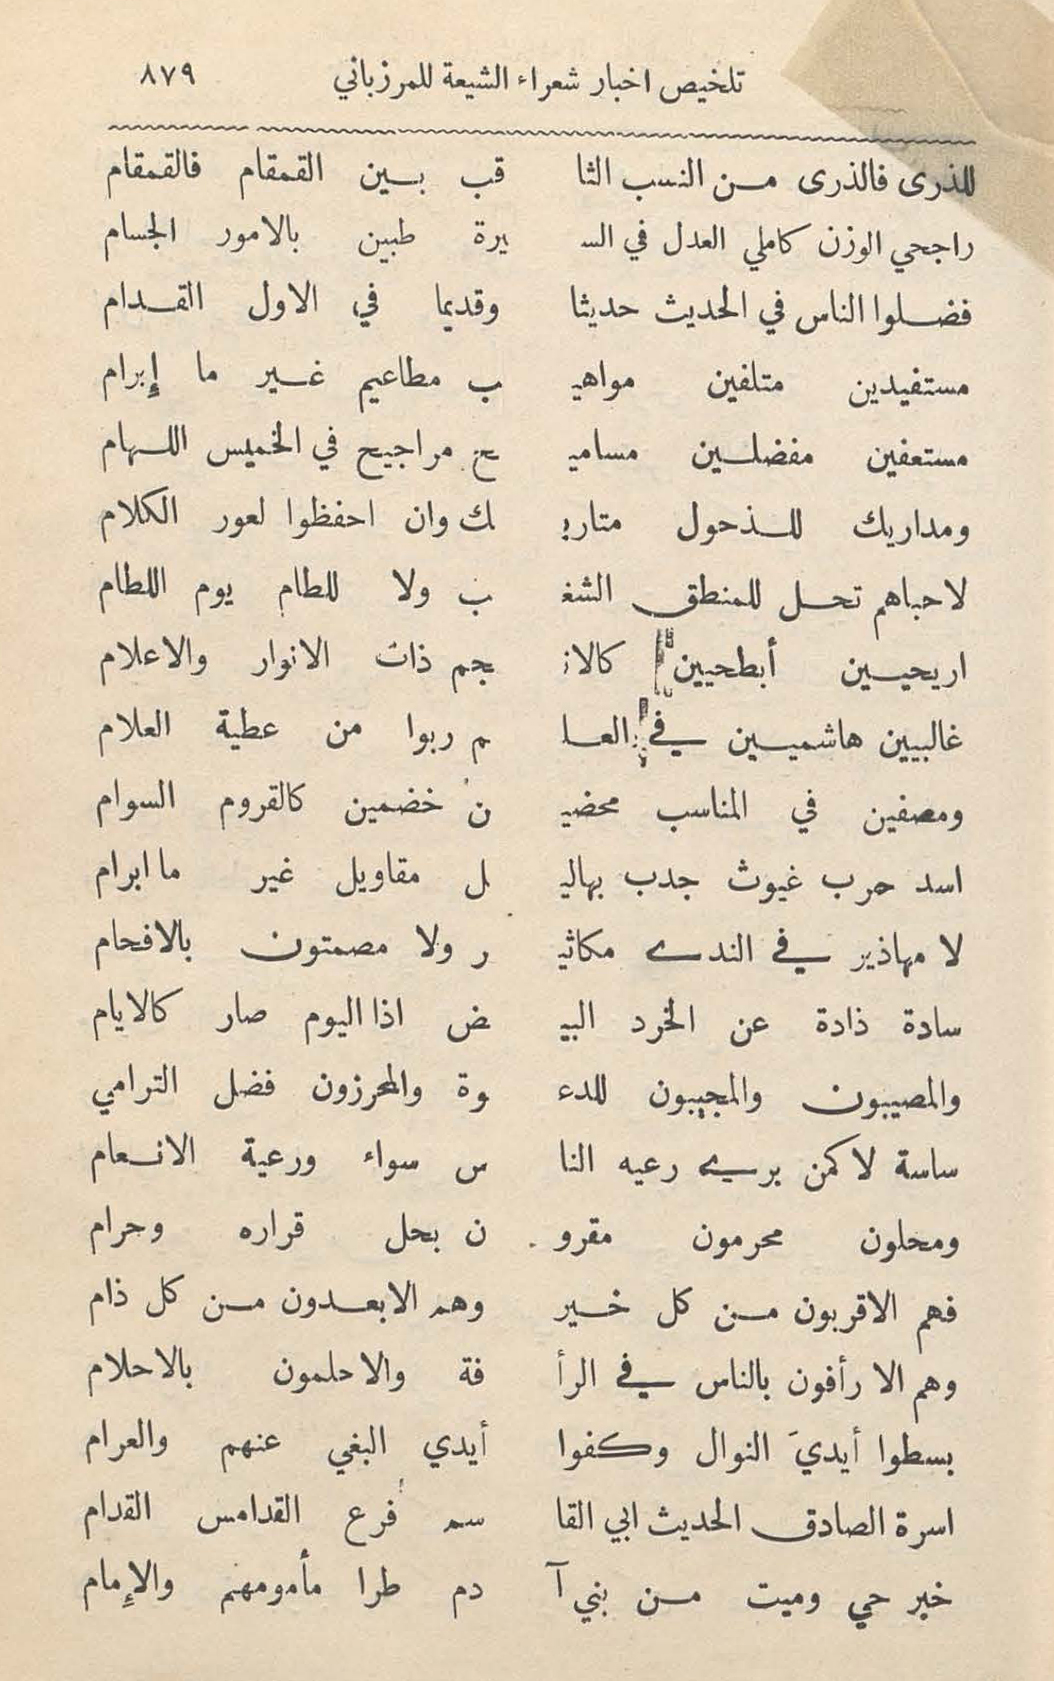 تلخيص اخبار شعراء الشيعة للمرزباني ٨٧٩
للذرى فالذرى مـن النسب الثا قب بـين القمقام فالقمقام
راجحي الوزن كاملي العدل في السـ يرة طبين بالامور الجسام
فضـلوا الناس في الحديث حديثا وقديما في الاول القـدام
مستفيدين متلفين مواهيـ ـب مطاعيم غـير ما إبرام
مستعفين مفضلـين مساميـ ـح مراجيح في الخميس اللـهام
ومداريك للـذحول متاريـ ـك وان احفظوا لعور الكلام
لا حباهم تحـل للمنطق الشغـ ـب ولا للطام يوم اللطام
اريحيـين أبطحيين كالانـ ـجم ذات الانوار والاعلام
غالبيين هاشميـين في العـلـ ـم ربوا من عطية العلام
ومصفين في المناسب محضيـ ـن خضمين كالقروم السوام
اسد حرب غيوث جدب بهاليـ ـل مقاويل غير ما ابرام
لا مهاذير في الندى مكاثيـ ـر ولا مصمتون بالافحام
سادة ذادة عن الخرد البيـ ـض اذا اليوم صار كالايام
والمصيبون والمجيبون للدعـ ـوة والمحرزون فضل الترامي
ساسة لا كمن يرى رعيه النا س سواء ورعية الانـعام
ومحلون محرمون مقرو ن بحل قراره وحرام
فهم الاقربون مـن كل خـير وهم الابعـدون مـن كل ذام
وهم الا رأفون بالناس في الرأ فة والاحلمون بالاحلام
بسطوا أيديَ النوال وكفوا أيدي البغي عنهم والعرام
اسرة الصادق الحديث ابي القا سم فرع القدامس القدام
خير حي وميت مـن بني آ دم طرا مأمومهم والإمام